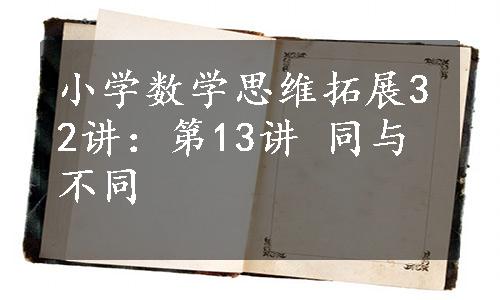 小学数学思维拓展3
2讲：第13讲 同与
不同